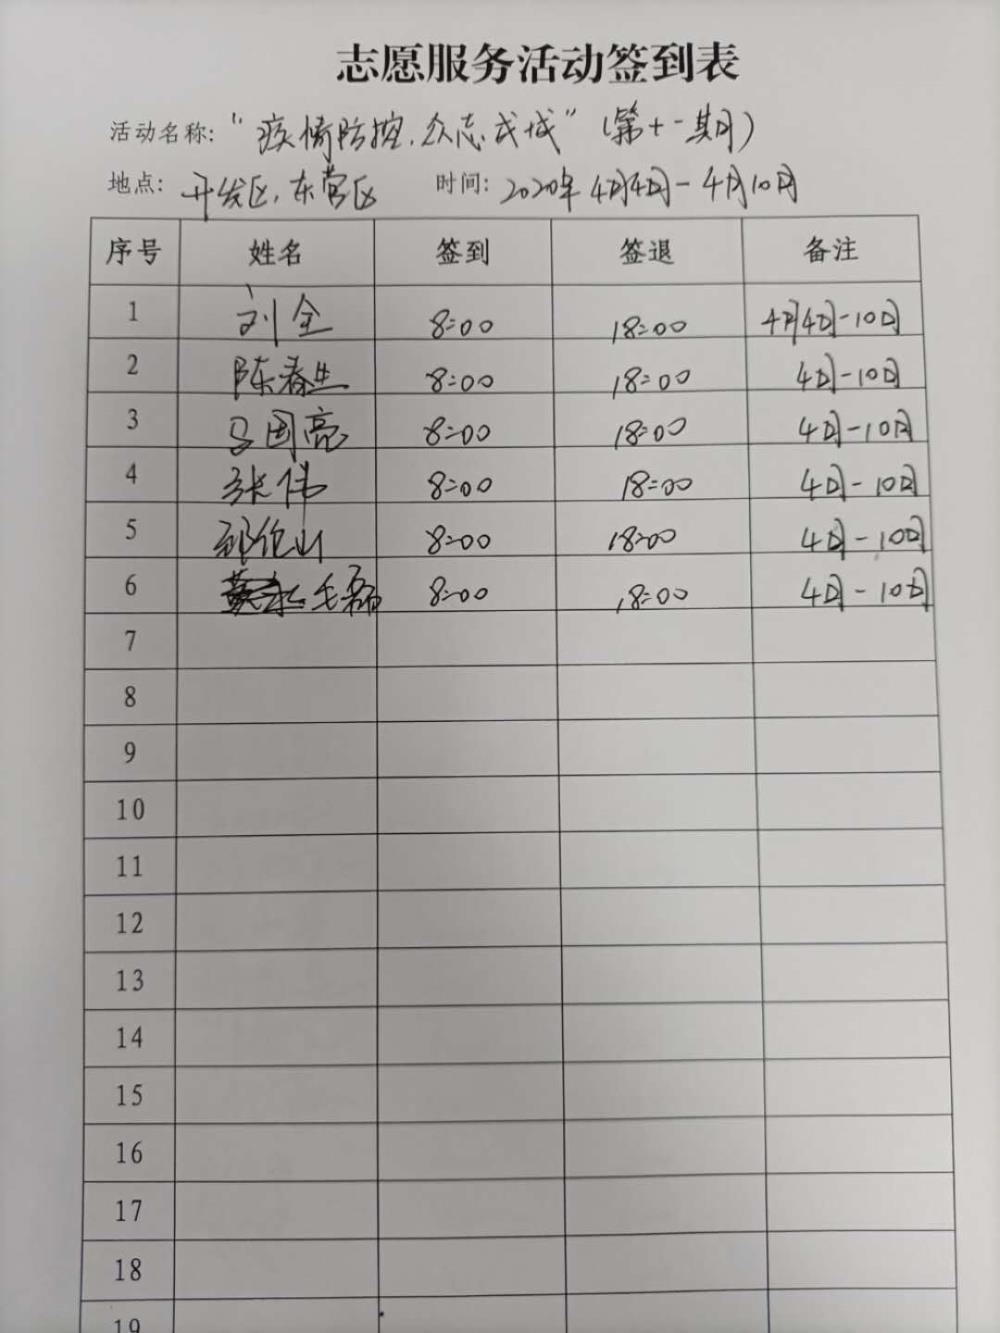 志愿服务活动签到表
活动名称: “疫情防控,众志成城”(第十一期)
地点: 开发区,东营区 时间: 2020年4月4日-4月10日
序号 姓名 签到 签退 备注
1 刘全 8:00 18:00 4月4日-10日
2 陈春生 8:00 18:00 4日-10日
3 马国亮 8:00 18:00 4日-10日
4 张伟 8:00 18:00 4日-10日
5 8:00 18:00 4日-10日
6 毛磊 8:00 18:00 4日-10日
7
8
9
10
11
12
13
14
15
16
17
18
19